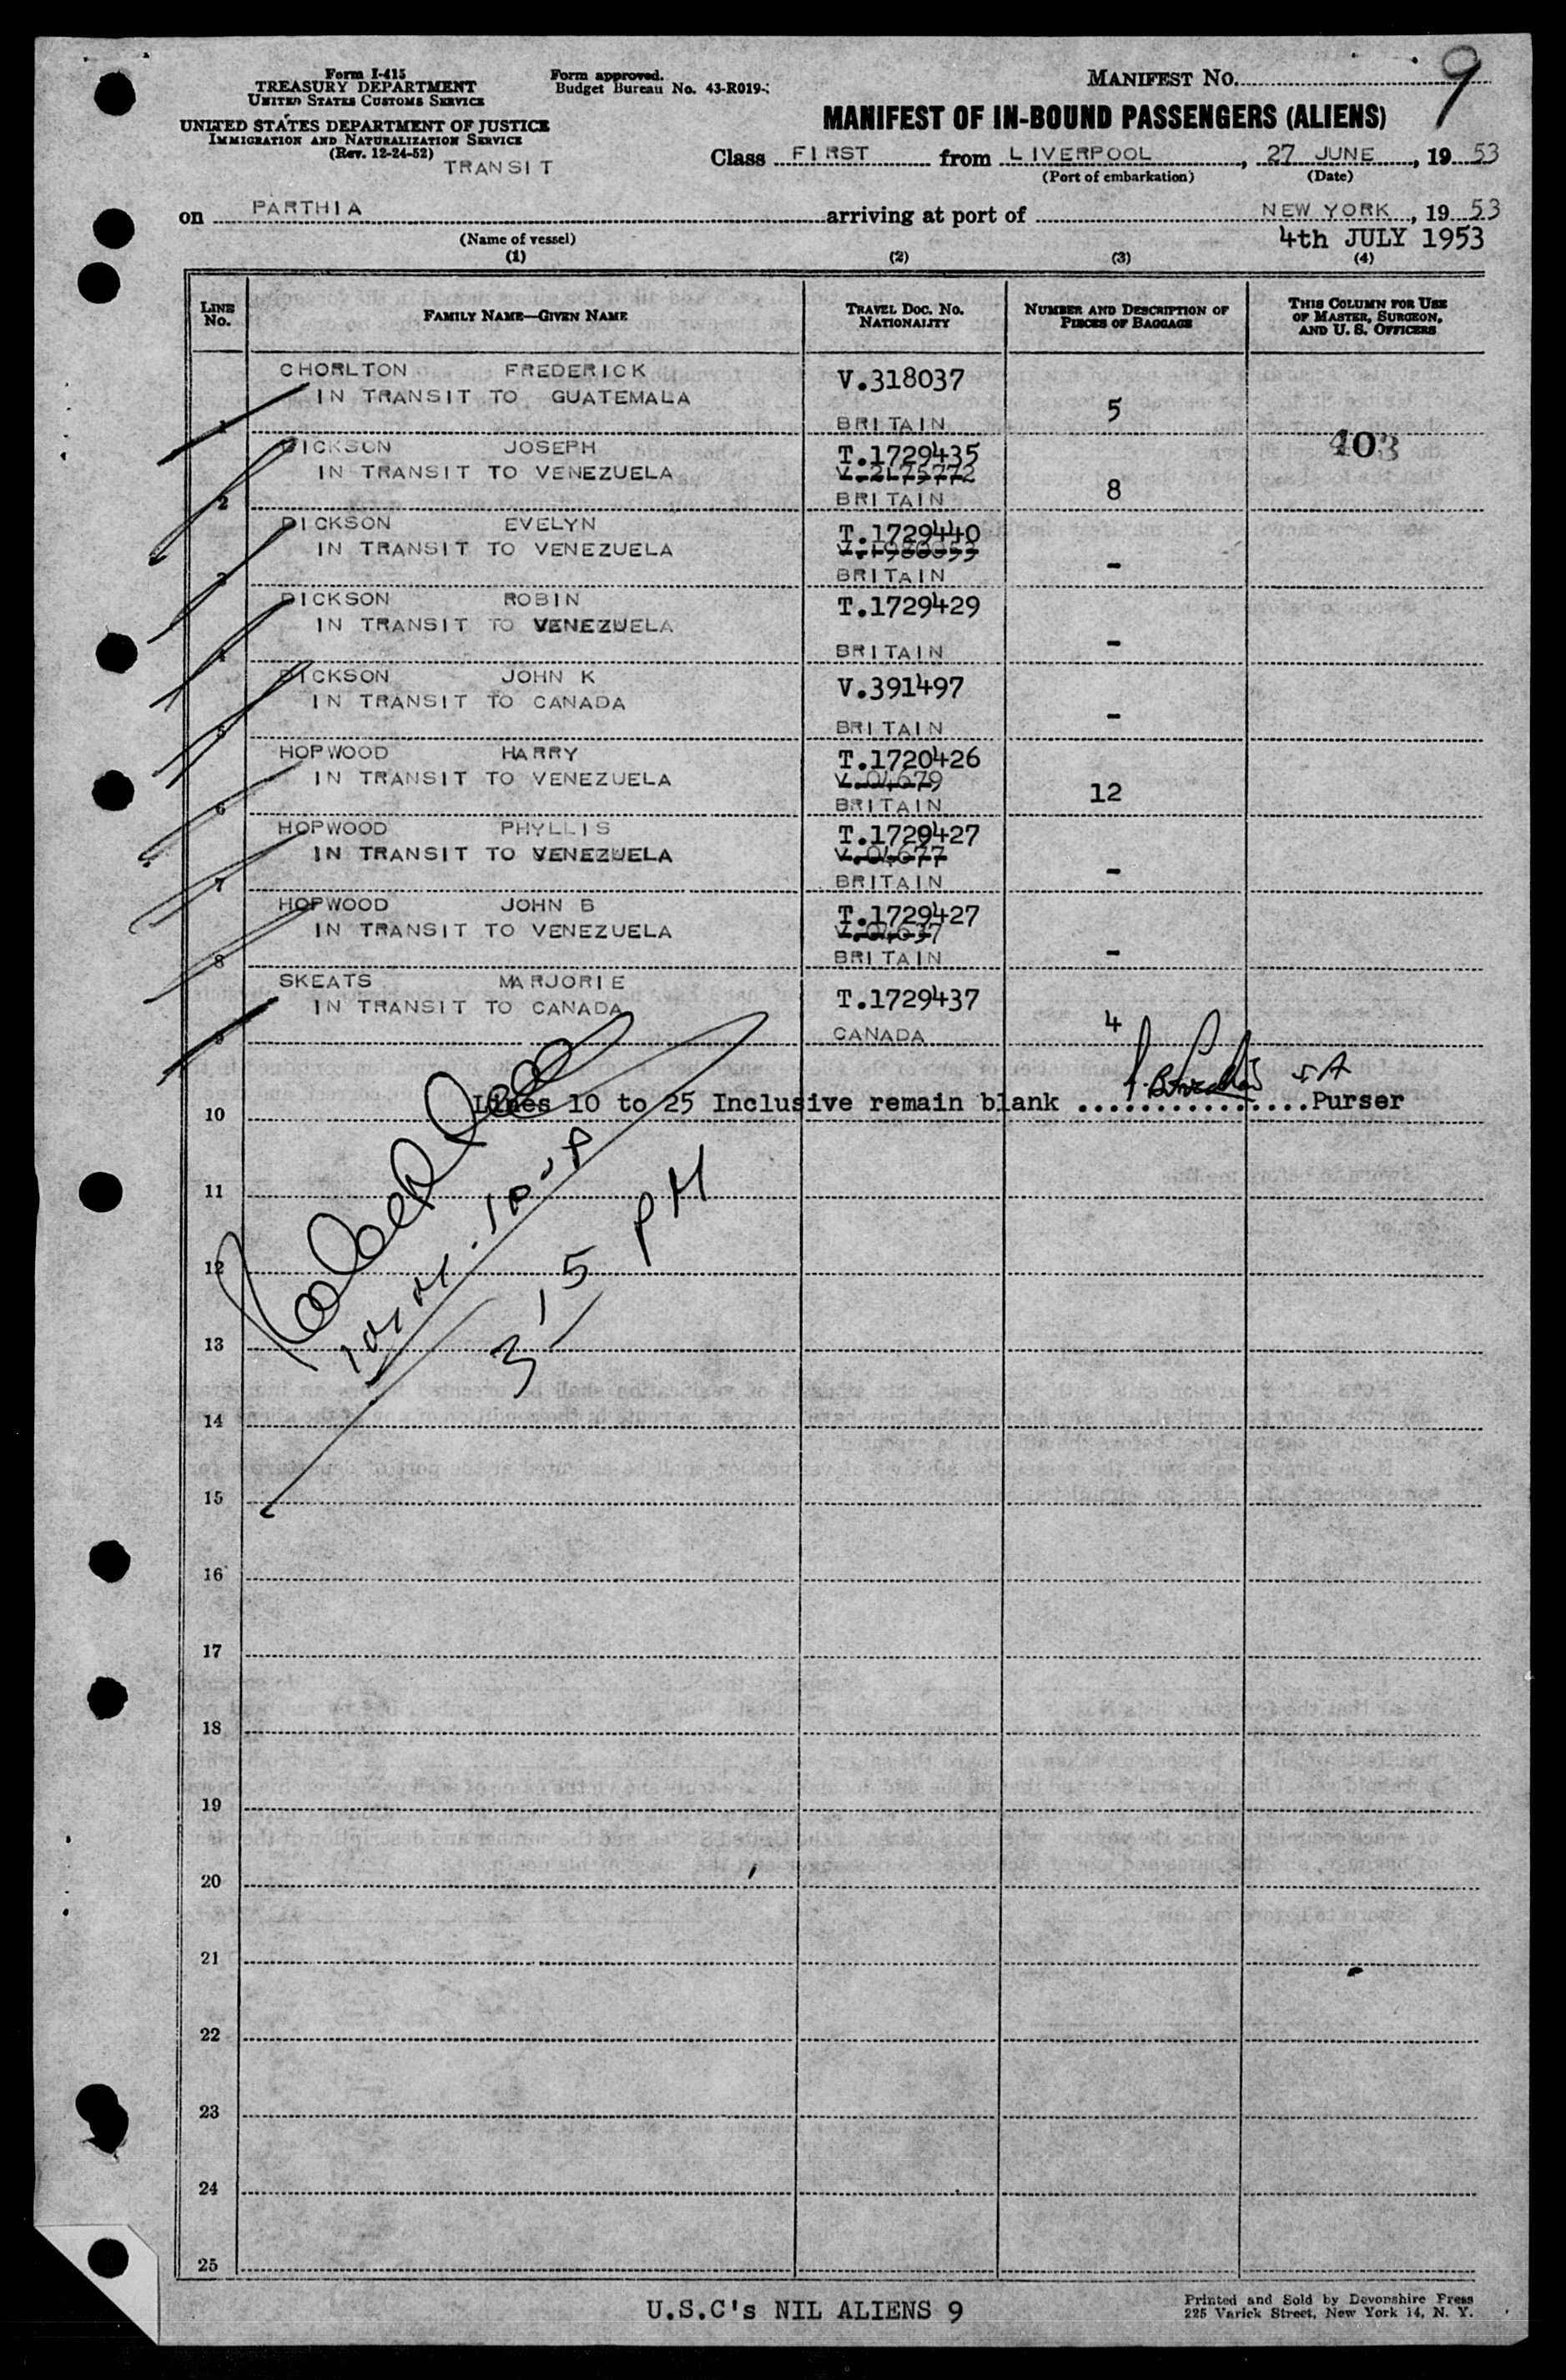 Form I-415
TREASURY DEPARTMENT
UNITED STATES CUSTOMS SERVICE
UNITED STATES DEPARTMENT OF JUSTICE
IMMIGRATION AND NATURALIZATION SERVICE
(Rev. 12-24-52)
TRANSIT
Form approved.
Budget Bureau No. 43-R019-
MANIFEST No. 9
MANIFEST OF IN-BOUND PASSENGERS (ALIENS)
Class FIRST from LIVERPOOL, 27 JUNE, 1953
(Port of embarkation) (Date)
on PARTHIA arriving at port of NEW YORK, 1953
(Name of vessel) 4th JULY 1953
(1) (2) (3) (4)
LINE No. FAMILY NAME—GIVEN NAME TRAVEL DOC. NO. NATIONALITY NUMBER AND DESCRIPTION OF PIECES OF BAGGAGE THIS COLUMN FOR USE OF MASTER, SURGEON, AND U. S. OFFICERS
CHORLTON FREDERICK V.318037
IN TRANSIT TO GUATEMALA
1 BRITAIN 5
DICKSON JOSEPH T.1729435 403
IN TRANSIT TO VENEZUELA
2 BRITAIN 8
DICKSON EVELYN T.1729440
IN TRANSIT TO VENEZUELA
3 BRITAIN -
DICKSON ROBIN T.1729429
IN TRANSIT TO VENEZUELA
4 BRITAIN -
DICKSON JOHN K V.391497
IN TRANSIT TO CANADA
5 BRITAIN -
HOPWOOD HARRY T.1720426
IN TRANSIT TO VENEZUELA V.04679
6 BRITAIN 12
HOPWOOD PHYLLIS T.1729427
IN TRANSIT TO VENEZUELA V.04677
7 BRITAIN -
HOPWOOD JOHN B T.1729427
IN TRANSIT TO VENEZUELA
8 BRITAIN -
SKEATS MARJORIE T.1729437
IN TRANSIT TO CANADA
9 CANADA 4
10 Lines 10 to 25 Inclusive remain blank ................Purser
11
12
3 15 PM
13
14
15
16
17
18
19
20
21
22
23
24
25
U.S.C's NIL ALIENS 9
Printed and Sold by Devonshire Press
225 Varick Street, New York 14, N. Y.